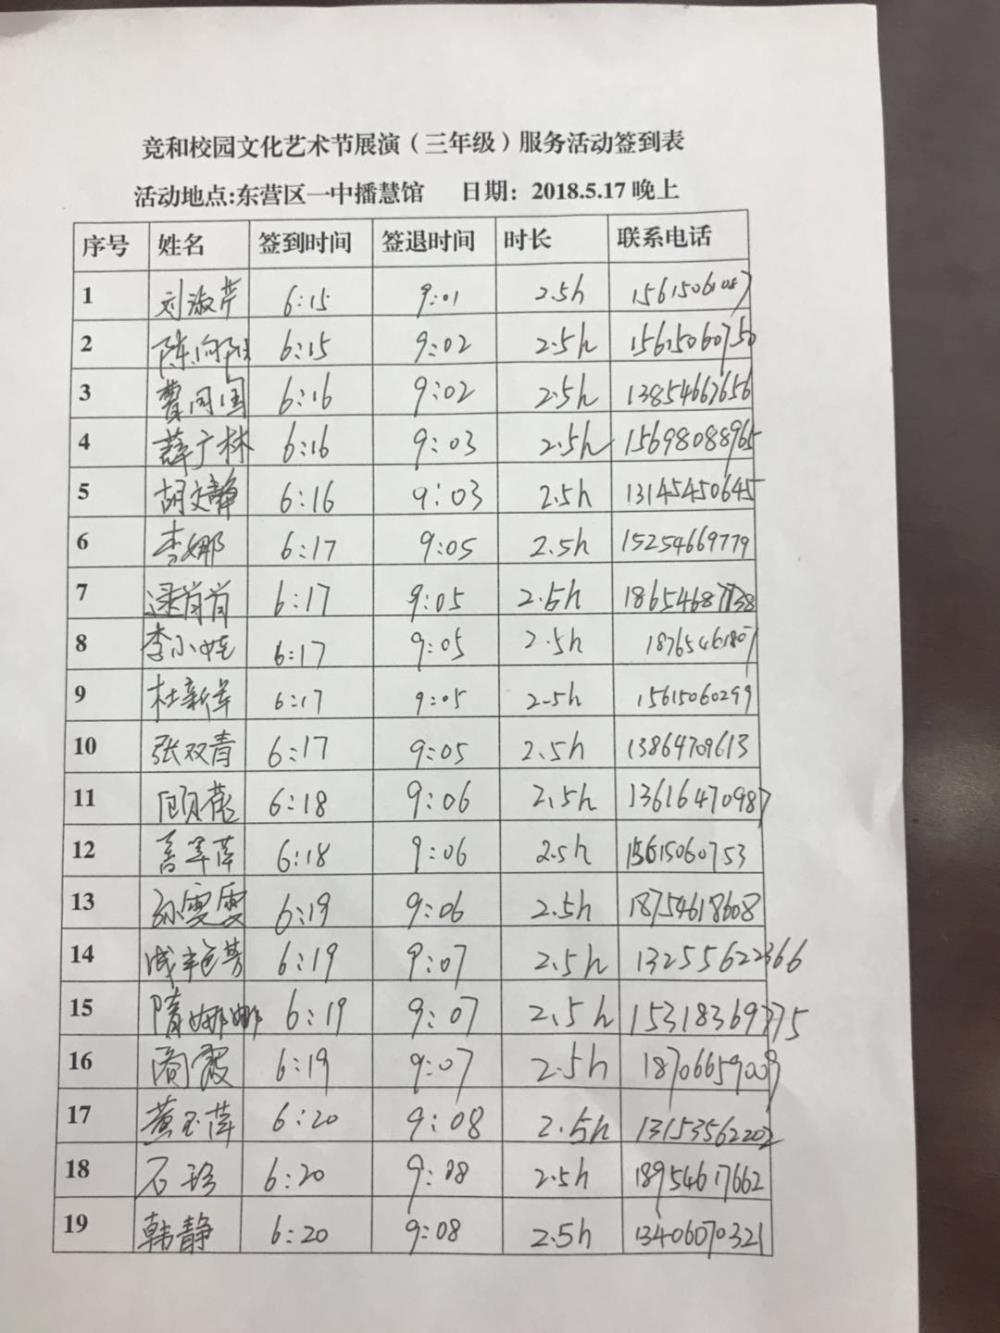 竞和校园文化艺术节展演（三年级）服务活动签到表
活动地点:东营区一中播慧馆 日期：2018.5.17 晚上
序号 姓名 签到时间 签退时间 时长 联系电话
1 刘淑芹 6:15 9:01 2.5h
2 陈向阳 6:15 9:02 2.5h 15615060750
3 曹同国 6:16 9:02 2.5h 13854667656
4 薛广林 6:16 9:03 2.5h 15698088965
5 胡文静 6:16 9:03 2.5h 13145450645
6 李娜 6:17 9:05 2.5h 15254669779
7 肖肖 6:17 9:05 2.5h 18654687738
8 李小娃 6:17 9:05 2.5h 18765461807
9 杜新华 6:17 9:05 2.5h 15615060299
10 张双青 6:17 9:05 2.5h 13864709613
11 顾蓓 6:18 9:06 2.5h 13616470987
12 6:18 9:06 2.5h 15615060753
13 孙雯雯 6:19 9:06 2.5h 18754618608
14 成艳芳 6:19 9:07 2.5h 13255622366
15 隋娜娜 6:19 9:07 2.5h 15318369775
16 周霞 6:19 9:07 2.5h 18706659009
17 黄玉萍 6:20 9:08 2.5h 13153562202
18 石珍 6:20 9:08 2.5h 18954617662
19 韩静 6:20 9:08 2.5h 13406070321